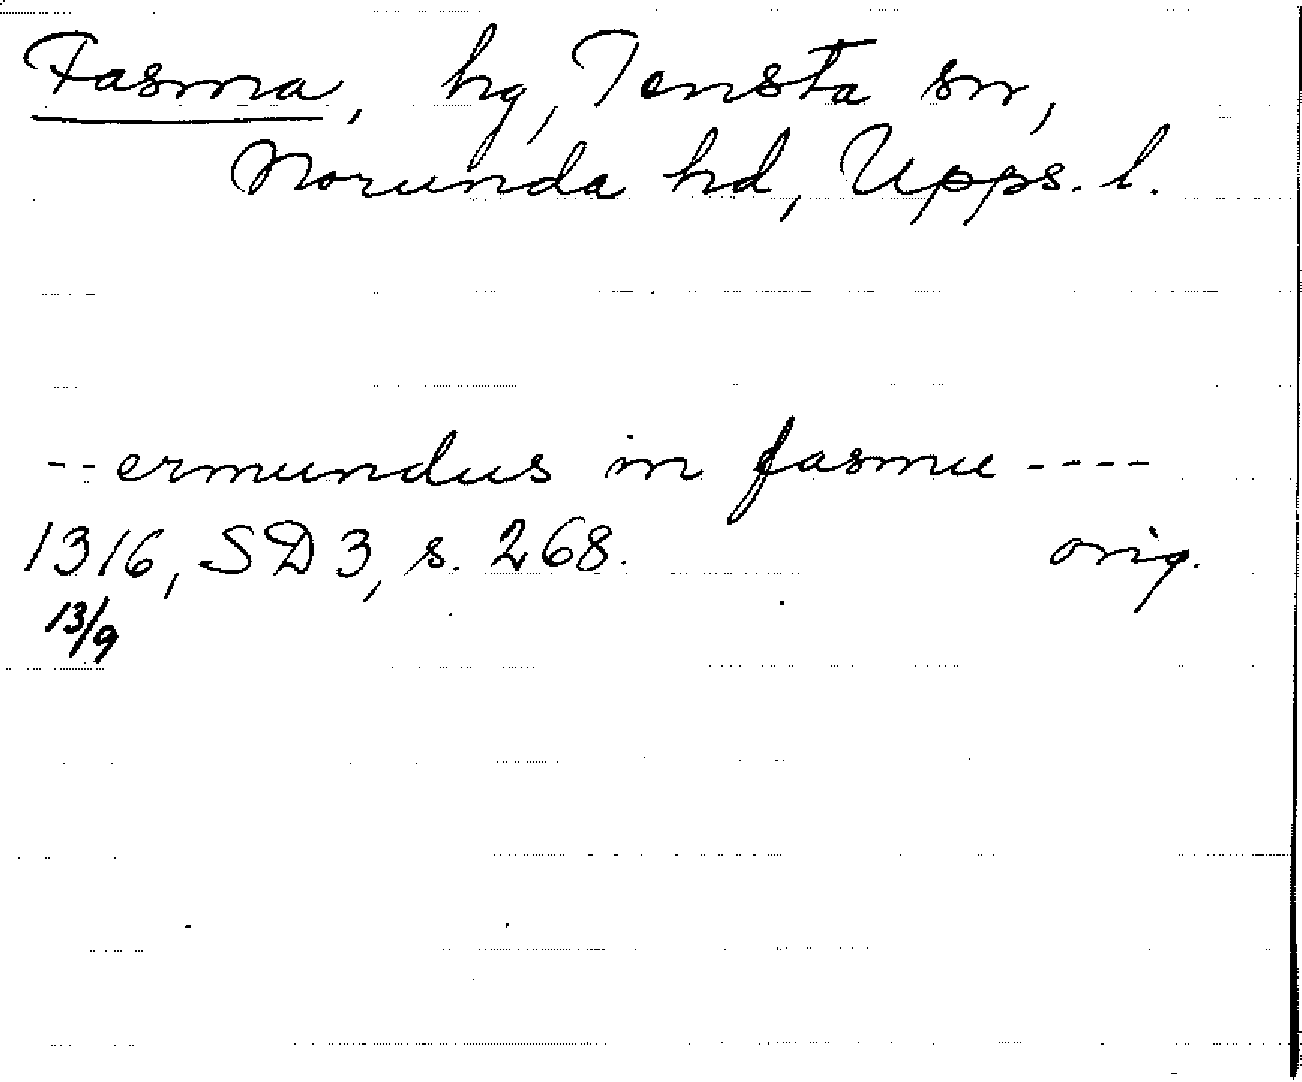 Fasma, hg, Tensta sn,
Norunda hd, Upps. l.
--ermundus in fasmu ----
1316, SD 3, s. 268. orig.
13/9